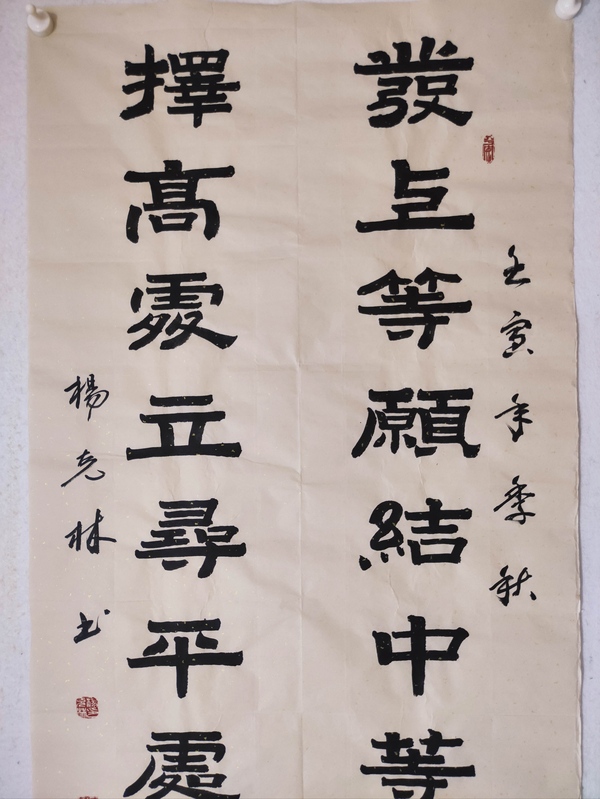 壬寅年季秋
發上等願結中等
擇高處立尋平處
楊克林书